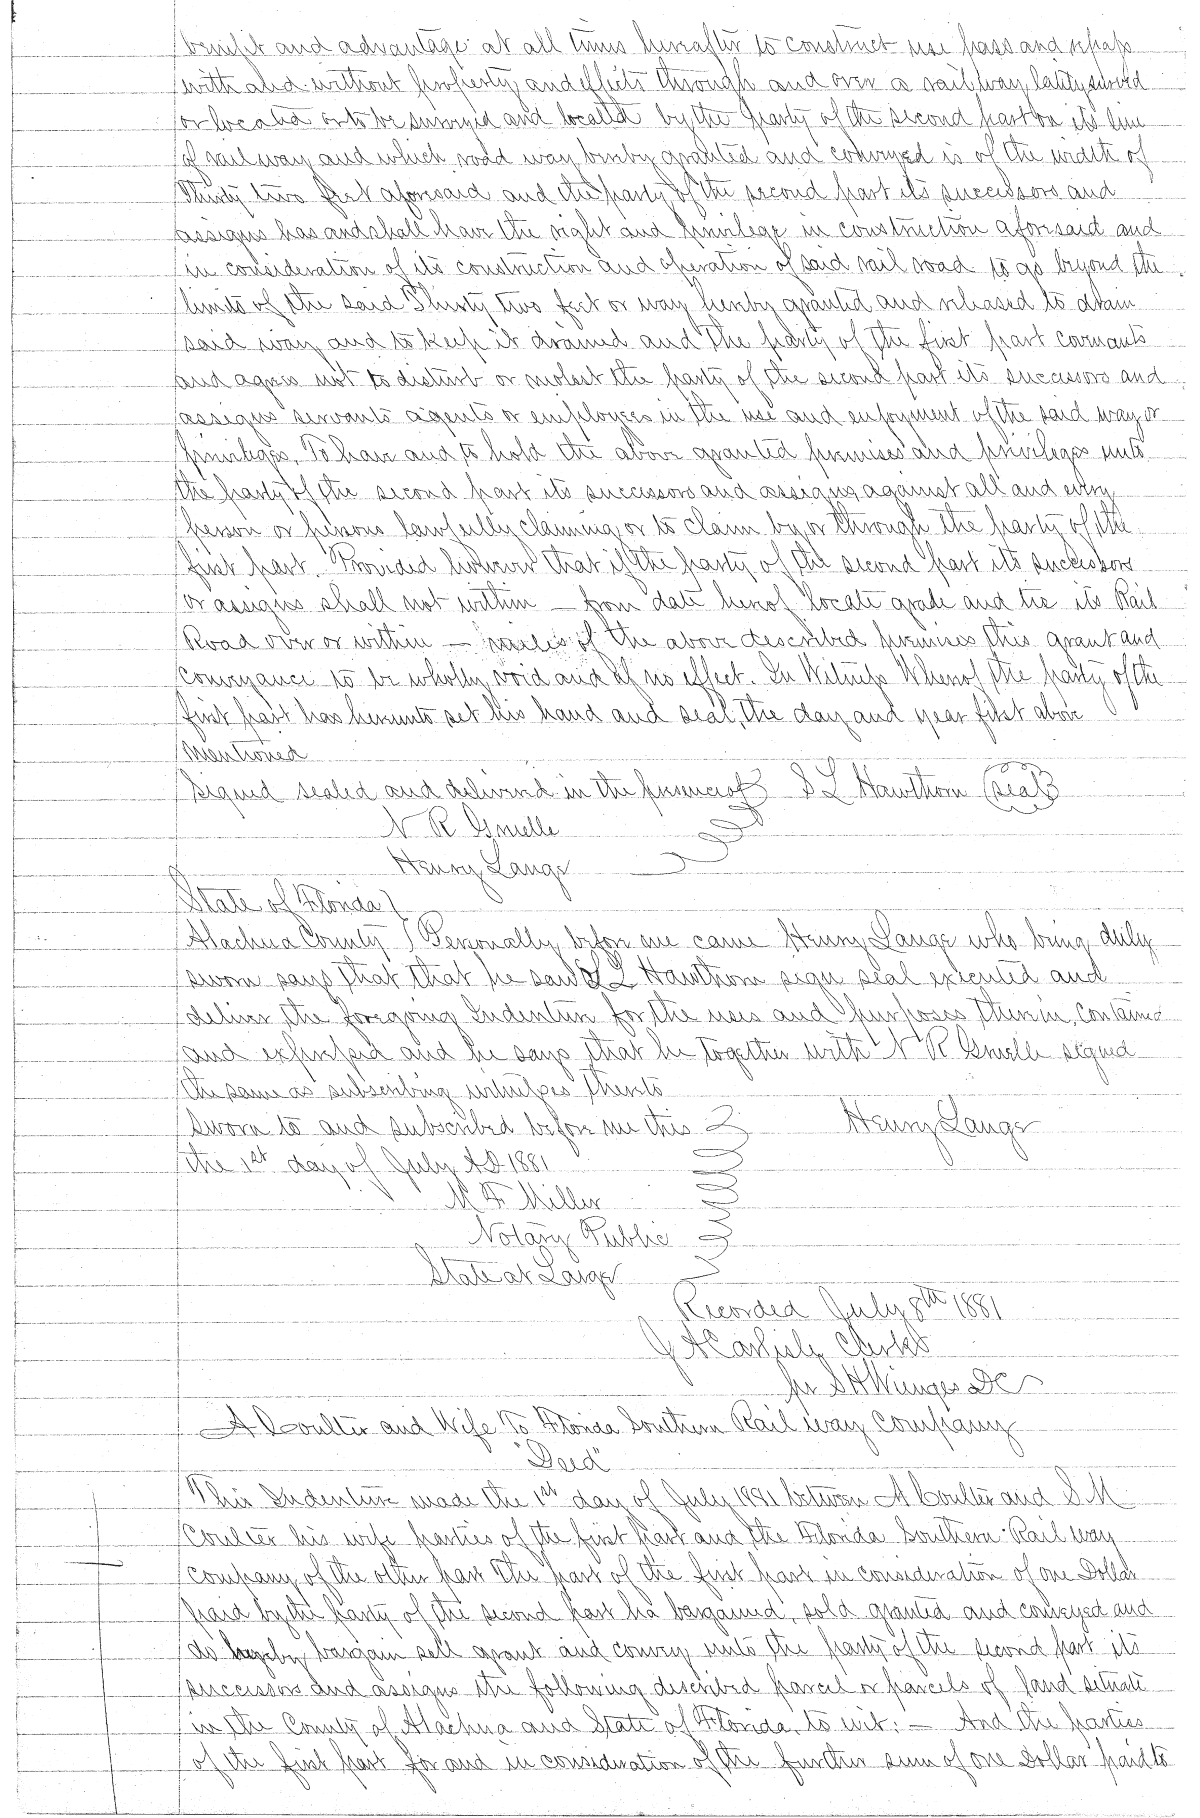 benefit and advantage at all times hereafter to construct use pass and repass
with and without property and effects through and over a rail way lately surved
or located or to be surveyed and located by the party of the second part on its line
of rail way and which road way hereby granted and conveyed is of the width of
Thirty two feet aforesaid and the party of the second part its successors and
assigns has and shall have the right and privilege in construction aforesaid and
in consideration of its construction and operation of said rail road to go beyond the
limits of the said Thirty two feet or way hereby granted and released to drain
said way and to keep it drained and the party of the first part covenants
and agrees not to disturb or molest the party of the second part its successors and
assigns servants agents or employees in the use and enjoyment of the said way or
privileges. To have and to hold the above granted premises and privileges unto
the party of the second part its successors and assigns against all and every
person or persons lawfully claiming or to claim by or through the party of the
first part. Provided however that if the party of the second part its successors
or assigns shall not within — from date hereof locate grade and tie its Rail
Road over or within — miles of the above described premises this grant and
conveyance to be wholly void and of no effect. In Witness Whereof the party of the
first part has hereunto set his hand and seal, the day and year first above
mentioned
Signed sealed and delivered in the presence of S L Hawthorn (seal)
N R Gruelle
Henry Lange
State of Florida }
Alachua County } Personally before me came Henry Lange who being duly
sworn says that that he saw S L Hawthorn sign seal executed and
deliver the foregoing Indenture for the uses and purposes therein contained
and expressed and he says that he together with N R Gruelle signed
the same as subscribing witnesses thereto
Sworn to and subscribed before me this Henry Lange
the 1st day of July AD 1881
M F Miller
Notary Public
State at Large
Recorded July 8th 1881
J A Carlisle Clerk
pr S H Wienges DC
A Coulter and Wife To Florida Southern Rail way Company
"Deed"
This Indenture made the 1st day of July 1881 between A Coulter and S M
Coulter his wife parties of the first part and the Florida Southern Rail way
company of the other part the part of the first part in consideration of one Dollar
paid by the party of the second part ha bargained, sold granted and conveyed and
do hereby bargain sell grant and convey unto the party of the second part its
successors and assigns the following described parcel or parcels of land situate
in the County of Alachua and State of Florida, to wit: — And the parties
of the first part for and in consideration of the further sum of one Dollar paid to